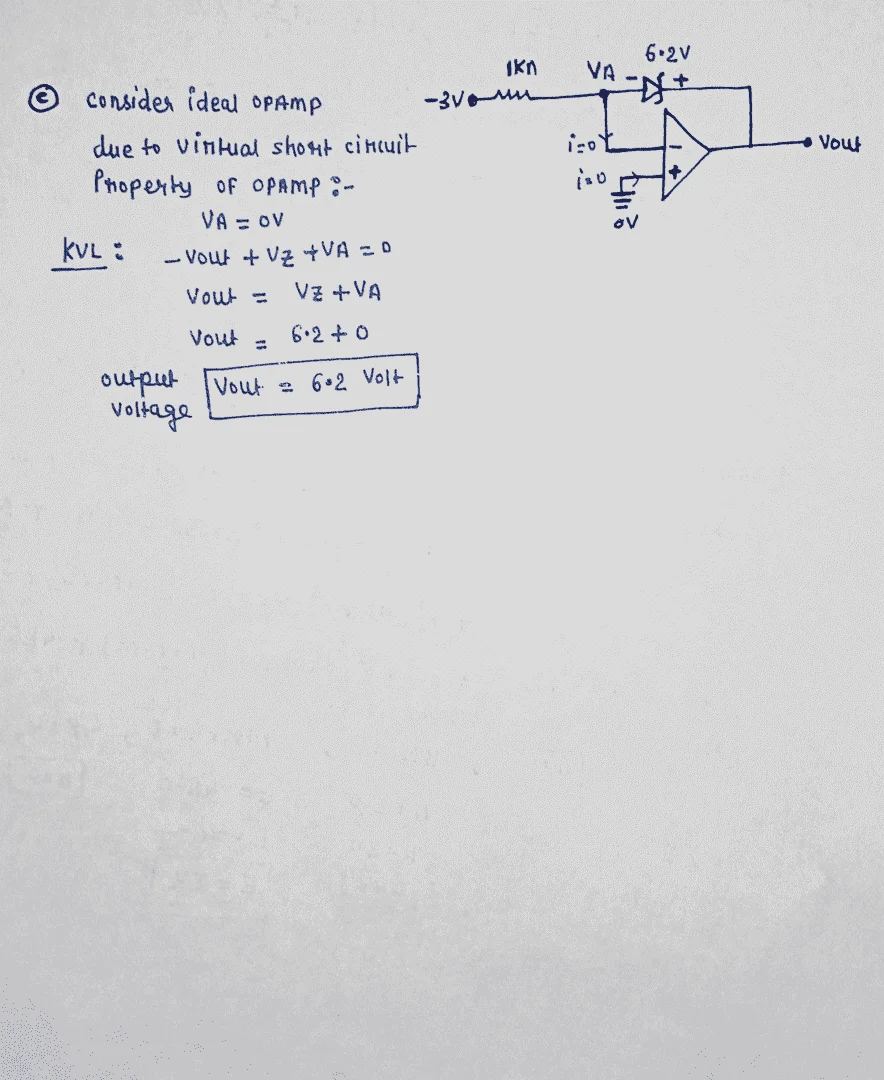 1KΩ
VA - 6.2V +
-3V
ⓔ consider ideal OPAMP
due to virtual short circuit
Property OF OPAMP :-
i=0
-
Vout
i=0
+
0V
VA = 0V
KVL : - Vout + VZ + VA = 0
Vout = VZ + VA
Vout = 6.2 + 0
output voltage
Vout = 6.2 Volt